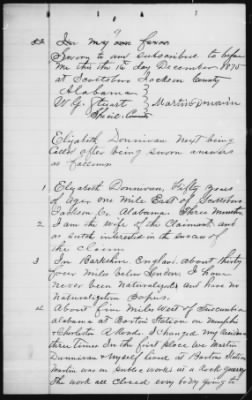 82 In my own favor
Sworn to and subscribed to before
me this the 15 day December 1875
at Scottsboro Jackson County
Alabama }
W. G. Stuart } Martin Donnivan
Special Com
Elizabeth Donnivan next being
called after being sworn answers
as follows
1 Elizabeth Donnivan, Fifty years
of age one mile East of Scottsboro
Jackson Co. Alabama Three Months
2 I am the wife of the Claimant and
as such interested in the success of
the claim
3 In Barkshire England about thirty
four miles below London I have
never been Naturalized and have no
Naturalization Papers.
4 About five miles West of Tuscumbia
Alabama at Barton Station on Memphis
& Charleston R Road. I changed my Residence
three times In the first place we Martin
Donnivan & Myself lived at Barton Station
Martin was in Public works in a Rock quarry
The work all Closed every body going to